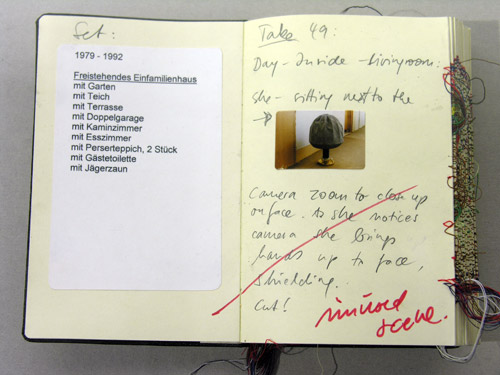 Set:
1979 - 1992
Freistehendes Einfamilienhaus
mit Garten
mit Teich
mit Terrasse
mit Doppelgarage
mit Kaminzimmer
mit Esszimmer
mit Perserteppich, 2 Stück
mit Gästetoilette
mit Jägerzaun
Take 49:
Day - Inside - Livingroom:
she - sitting next to the
camera zoom to close up
on face. As she notices
camera she brings
hands up to face,
shielding.
cut!
scene.